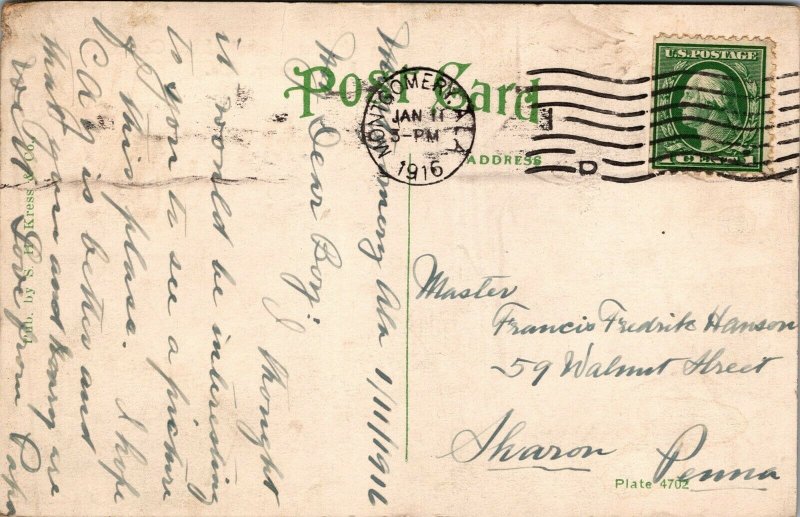 Post Card
MONTGOMERY, ALA.
JAN 11
3-PM
1916
D
U.S. POSTAGE
ADDRESS
Montgomery Ala 1/11/1916
My Dear Boy;
I thought
it would be interesting
to you to see a picture
of this place. I hope
is better and
that you and Henry are
well. Love from Papa
Pub. by S. H. Kress & Co.
Master
Francis Fredrik Hanson
59 Walnut Street
Sharon
Penna
Plate 4702